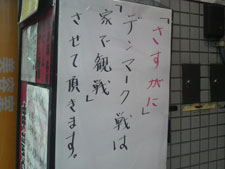 「さすがに」
デンマーク戦は
「家で観戦」
させて頂きます。